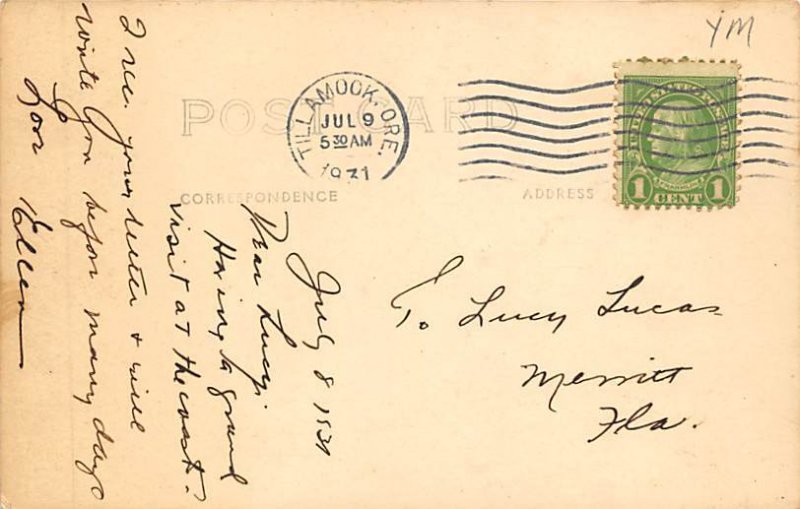 YM
POST CARD
TILLAMOOK, ORE.
JUL 9
5 30 AM
1931
1 CENT 1
FRANKLIN
CORRESPONDENCE
ADDRESS
July 8 1931
Dear Lucy.
Having a grand
visit at the coast.
I rec. your letter & will
write you before many days
Ellen
To Lucy Lucas
Merritt
Fla.